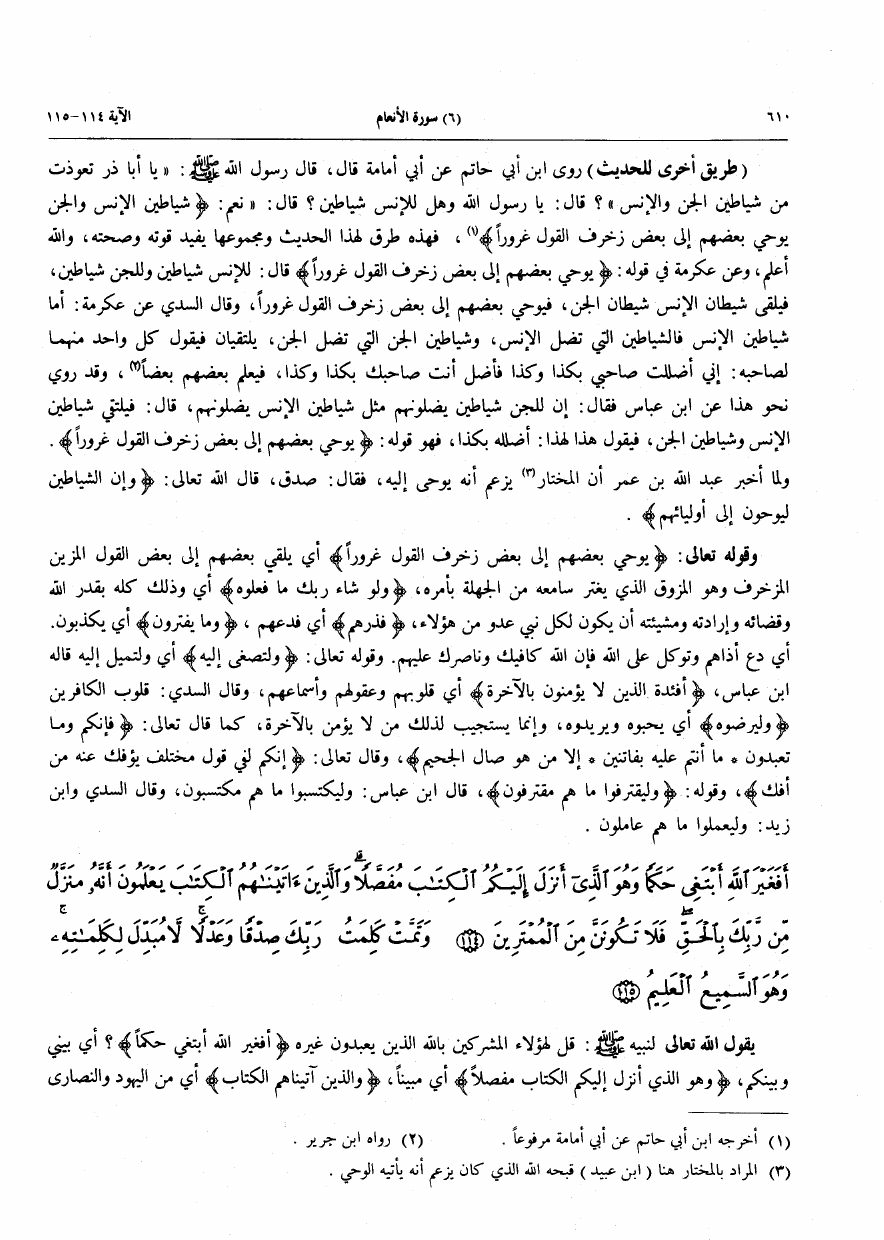 ٦١٠ (٦) سورة الأنعام الآية ١١٤-١١٥
(طريق أخرى للحديث) روى ابن أبي حاتم عن أبي أمامة قال، قال رسول الله ﷺ: «يا أبا ذر تعوذت
من شياطين الجن والإنس»؟ قال: يا رسول الله وهل للإنس شياطين؟ قال: «نعم: ﴿شياطين الإنس والجن
يوحي بعضهم إلى بعض زخرف القول غروراً﴾(١)، فهذه طرق لهذا الحديث ومجموعها يفيد قوته وصحته، والله
أعلم، وعن عكرمة في قوله: ﴿يوحي بعضهم إلى بعض زخرف القول غروراً﴾ قال: للإنس شياطين وللجن شياطين،
فيلقى شيطان الإنس شيطان الجن، فيوحي بعضهم إلى بعض زخرف القول غروراً، وقال السدي عن عكرمة: أما
شياطين الإنس فالشياطين التي تضل الإنس، وشياطين الجن التي تضل الجن، يلتقيان فيقول كل واحد منهما
لصاحبه: إني أضللت صاحبي بكذا وكذا فأضل أنت صاحبك بكذا وكذا، فيعلم بعضهم بعضاً(٢)، وقد روي
نحو هذا عن ابن عباس فقال: إن للجن شياطين يضلونهم مثل شياطين الإنس يضلونهم، قال: فيلتقي شياطين
الإنس وشياطين الجن، فيقول هذا لهذا: أضلله بكذا، فهو قوله: ﴿يوحي بعضهم إلى بعض زخرف القول غروراً﴾.
ولما أخبر عبد الله بن عمر أن المختار(٣) يزعم أنه يوحى إليه، فقال: صدق، قال الله تعالى: ﴿وإن الشياطين
ليوحون إلى أوليائهم﴾.
وقوله تعالى: ﴿يوحي بعضهم إلى بعض زخرف القول غروراً﴾ أي يلقي بعضهم إلى بعض القول المزين
المزخرف وهو المزوق الذي يغتر سامعه من الجهلة بأمره، ﴿ولو شاء ربك ما فعلوه﴾ أي وذلك كله بقدر الله
وقضائه وإرادته ومشيئته أن يكون لكل نبي عدو من هؤلاء، ﴿فذرهم﴾ أي فدعهم، ﴿وما يفترون﴾ أي يكذبون.
أي دع أذاهم وتوكل على الله فإن الله كافيك وناصرك عليهم. وقوله تعالى: ﴿ولتصغى إليه﴾ أي ولتميل إليه قاله
ابن عباس، ﴿أفئدة الذين لا يؤمنون بالآخرة﴾ أي قلوبهم وعقولهم وأسماعهم، وقال السدي: قلوب الكافرين
﴿وليرضوه﴾ أي يحبوه ويريدوه، وإنما يستجيب لذلك من لا يؤمن بالآخرة، كما قال تعالى: ﴿فإنكم وما
تعبدون * ما أنتم عليه بفاتنين * إلا من هو صال الجحيم﴾، وقال تعالى: ﴿إنكم لفي قول مختلف يؤفك عنه من
أفك﴾، وقوله: ﴿وليقترفوا ما هم مقترفون﴾، قال ابن عباس: وليكتسبوا ما هم مكتسبون، وقال السدي وابن
زيد: وليعملوا ما هم عاملون.
أَفَغَيْرَ ٱللَّهِ أَبْتَغِى حَكَمًا وَهُوَ ٱلَّذِىٓ أَنزَلَ إِلَيْكُمُ ٱلْكِتَٰبَ مُفَصَّلًا ۚ وَٱلَّذِينَ ءَاتَيْنَٰهُمُ ٱلْكِتَٰبَ يَعْلَمُونَ أَنَّهُۥ مُنَزَّلٌ
مِّن رَّبِّكَ بِٱلْحَقِّ ۖ فَلَا تَكُونَنَّ مِنَ ٱلْمُمْتَرِينَ ﴿١١٤﴾ وَتَمَّتْ كَلِمَتُ رَبِّكَ صِدْقًا وَعَدْلًا ۚ لَّا مُبَدِّلَ لِكَلِمَٰتِهِۦ ۚ
وَهُوَ ٱلسَّمِيعُ ٱلْعَلِيمُ ﴿١١٥﴾
يقول الله تعالى لنبيه ﷺ: قل لهؤلاء المشركين بالله الذين يعبدون غيره ﴿أفغير الله أبتغي حكماً﴾؟ أي بيني
وبينكم، ﴿وهو الذي أنزل إليكم الكتاب مفصلاً﴾ أي مبيناً، ﴿والذين آتيناهم الكتاب﴾ أي من اليهود والنصارى
(١) أخرجه ابن أبي حاتم عن أبي أمامة مرفوعاً. (٢) رواه ابن جرير.
(٣) المراد بالمختار هنا (ابن عبيد) قبحه الله الذي كان يزعم أنه يأتيه الوحي.